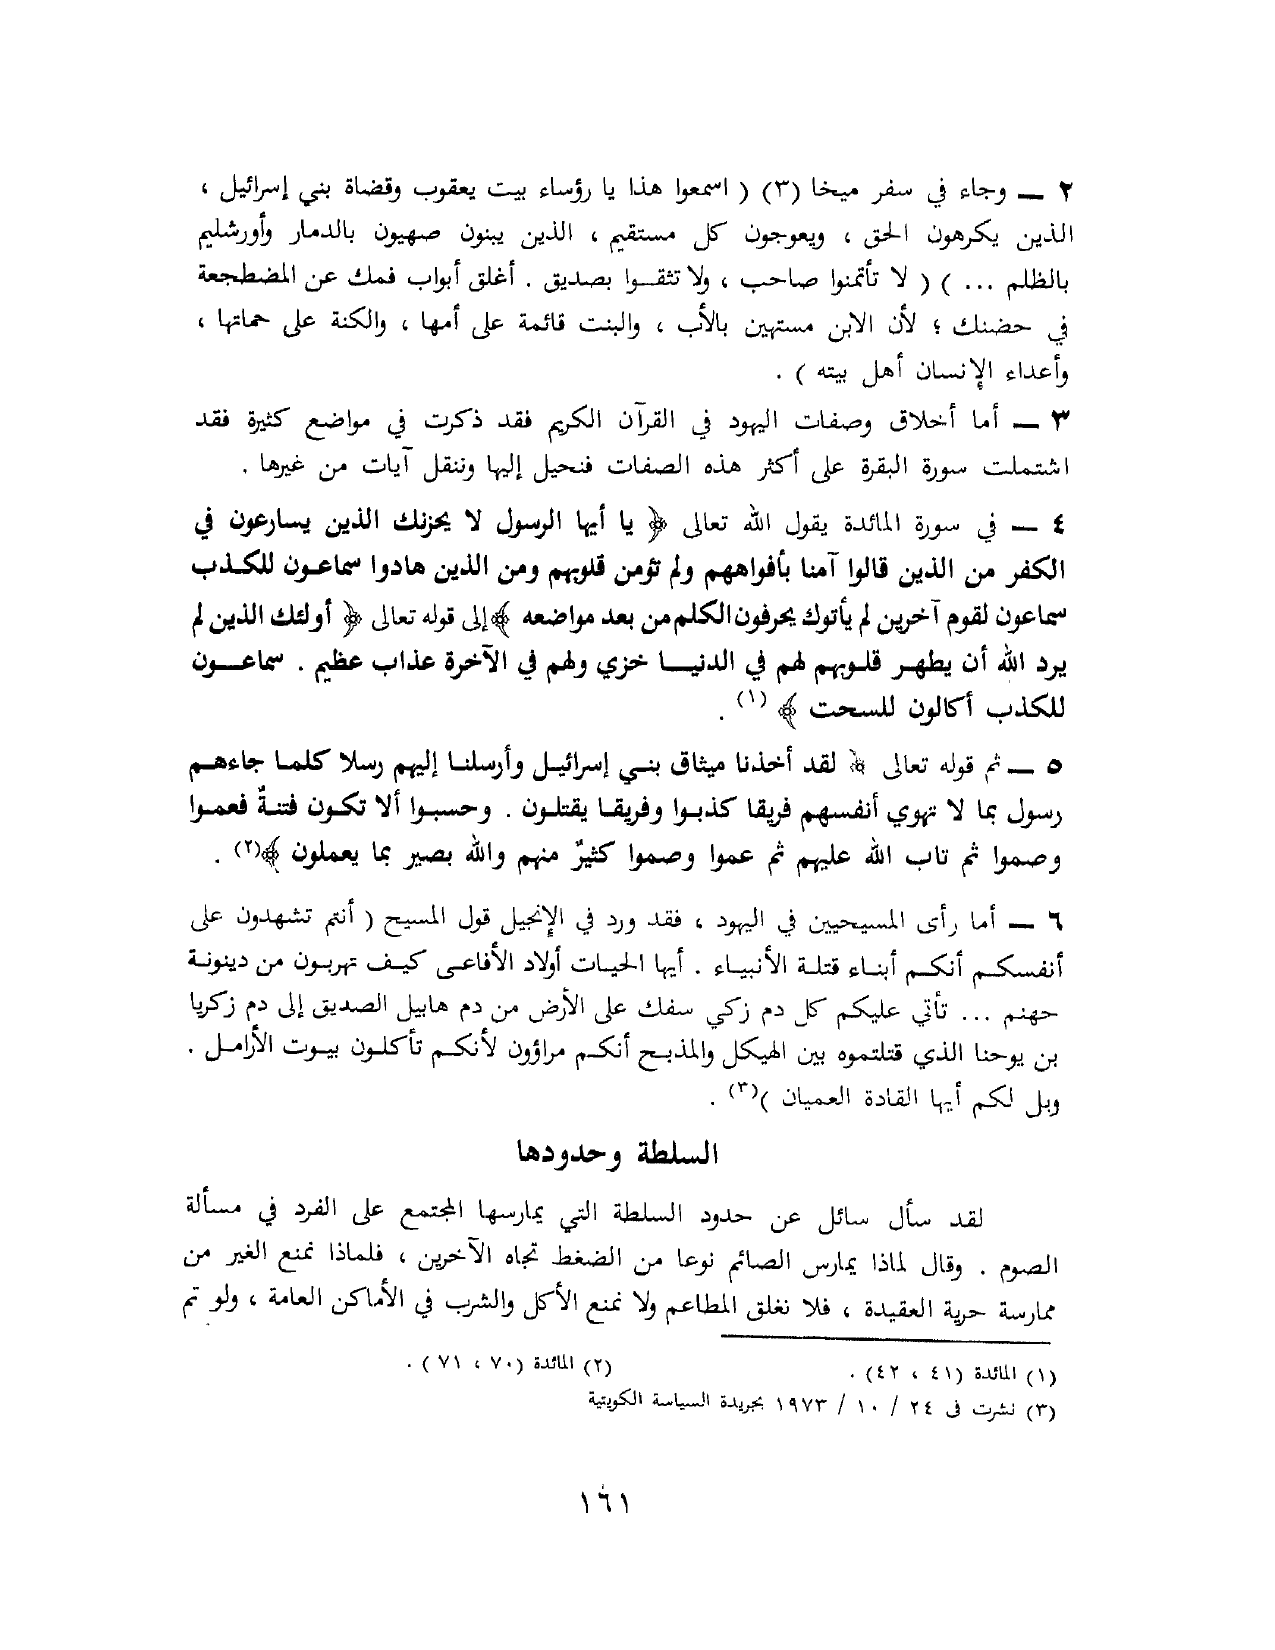 ٢ — وجاء في سفر ميخا (٣) ( اسمعوا هذا يا رؤساء بيت يعقوب وقضاة بني إسرائيل ،
الذين يكرهون الحق ، ويعوجون كل مستقيم ، الذين يبنون صهيون بالدمار وأورشليم
بالظلم ... ) ( لا تأتمنوا صاحب ، ولا تثقوا بصديق . أغلق أبواب فمك عن المضطجعة
في حضنك ؛ لأن الابن مستهين بالأب ، والبنت قائمة على أمها ، والكنة على حماتها ،
وأعداء الإنسان أهل بيته ) .
٣ — أما أخلاق وصفات اليهود في القرآن الكريم فقد ذكرت في مواضع كثيرة فقد
اشتملت سورة البقرة على أكثر هذه الصفات فنحيل إليها وننقل آيات من غيرها .
٤ — في سورة المائدة يقول الله تعالى ﴿ يا أيها الرسول لا يحزنك الذين يسارعون في
الكفر من الذين قالوا آمنا بأفواههم ولم تؤمن قلوبهم ومن الذين هادوا سماعون للكذب
سماعون لقوم آخرين لم يأتوك يحرفون الكلم من بعد مواضعه ﴾ إلى قوله تعالى ﴿ أولئك الذين لم
يرد الله أن يطهر قلوبهم لهم في الدنيا خزي ولهم في الآخرة عذاب عظيم . سماعون
للكذب أكالون للسحت ﴾ (١) .
٥ — ثم قوله تعالى ﴿ لقد أخذنا ميثاق بني إسرائيل وأرسلنا إليهم رسلا كلما جاءهم
رسول بما لا تهوي أنفسهم فريقا كذبوا وفريقا يقتلون . وحسبوا ألا تكون فتنةٌ فعموا
وصموا ثم تاب الله عليهم ثم عموا وصموا كثيرٌ منهم والله بصير بما يعملون ﴾(٢) .
٦ — أما رأى المسيحيين في اليهود ، فقد ورد في الإنجيل قول المسيح ( أنتم تشهدون على
أنفسكم أنكم أبناء قتلة الأنبياء . أيها الحيات أولاد الأفاعى كيف تهربون من دينونة
جهنم ... تأتي عليكم كل دم زكي سفك على الأرض من دم هابيل الصديق إلى دم زكريا
بن يوحنا الذي قتلتموه بين الهيكل والمذبح أنكم مراؤون لأنكم تأكلون بيوت الأرامل .
ويل لكم أيها القادة العميان )(٣) .
السلطة وحدودها
لقد سأل سائل عن حدود السلطة التي يمارسها المجتمع على الفرد في مسألة
الصوم . وقال لماذا يمارس الصائم نوعا من الضغط تجاه الآخرين ، فلماذا نمنع الغير من
ممارسة حرية العقيدة ، فلا نغلق المطاعم ولا نمنع الأكل والشرب في الأماكن العامة ، ولو تم
(١) المائدة (٤١ ، ٤٢) . (٢) المائدة (٧٠ ، ٧١) .
(٣) نشرت فى ٢٤ / ١٠ / ١٩٧٣ بجريدة السياسة الكويتية
١٦١